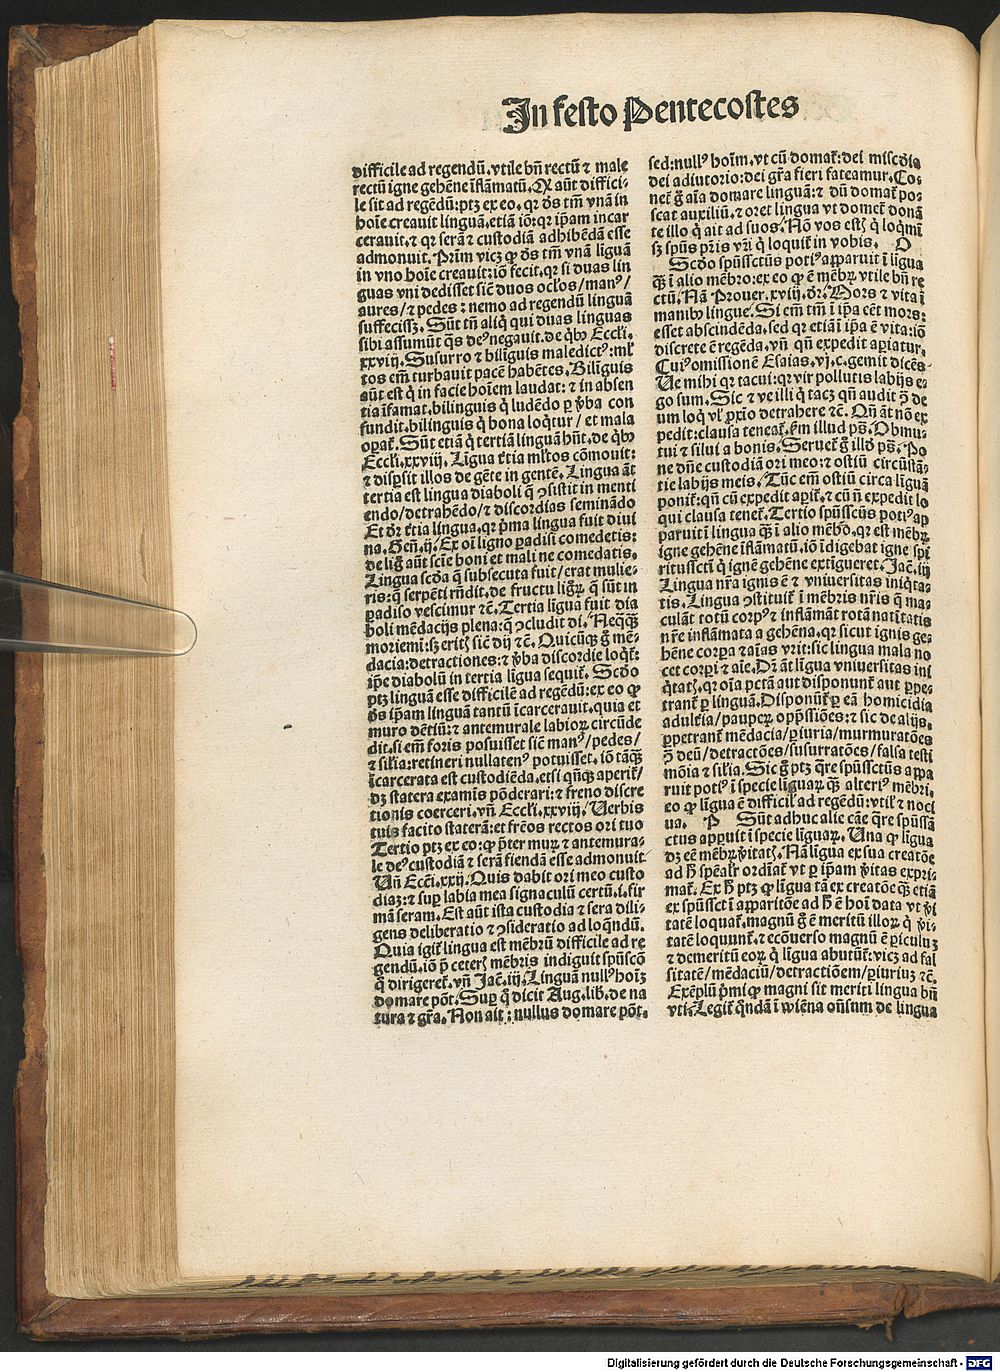 In festo Pentecostes
difficile ad regendū. vtile bñ rectū ⁊ male
rectū igne gehēne īflāmatū. Q̄ aūt diffici-
le sit ad regēdū: ptꝫ ex eo. qꝛ ds̄ tm̄ vnā in
hoīe creauit linguā. etiā iō: qꝛ ip̄am incar
cerauit. ⁊ qꝛ serā ⁊ custodiā adhibēdā esse
admonuit. Prim̄ vicꝫ ꝙ ds̄ tm̄ vnā līguā
in vno hoīe creauit: iō fecit. qꝛ si duas lin
guas vni dedisset sic̄ duos oc̄los/ manꝰ/
aures/ ⁊ pedes: nemo ad regendū linguā
suffecissꝫ. Sūt tñ aliq̄ qui duas linguas
sibi assumūt q̄s deꝰ negauit. de q̄bꝰ Eccli.
xxviij. Susurro ⁊ bilīguis maledictꝰ: ml̄
tos em̄ turbauit pacē habētes. Bilīguis
aūt est q̇ in facie hoīem laudat: ⁊ in absen
tia īfamat. bilinguis q̇ ludēdo ꝑ v̄ba con
fundit. bilinguis q̇ bona loq̄tur/ et mala
oꝑat̄. Sūt etiā q̇ tertiā linguā hñt. de q̄bꝰ
Eccli. xxviij. Līgua t̄tia ml̄tos cōmouit:
⁊ disꝑsit illos de gēte in gentē. Lingua āt
tertia est lingua diaboli q̄ ꝯsistit in menti
endo/ detrahēdo/ ⁊ discordias seminādo
Et dr̄ t̄tia lingua. qꝛ p̄ma lingua fuit diui
na. Geñ. ij. Ex oī ligno ꝑadisi comedetis:
de lig̊ aūt scīe boni et mali ne comedatis.
Lingua scd̄a q̄ subsecuta fuit/ erat mulie-
ris: q̄ serpēti rn̄dit. de fructu lignoꝝ q̄ sūt in
ꝑadiso vescimur ⁊c̄. Tertia līgua fuit dia
boli mēdacijs plena: q̄ ꝯcludit di. Neq̄ꝫ
moriemi: sꝫ eritꝭ sic̄ dij ⁊c̄. Quicūqꝫ g̊ mē-
dacia: detractiones: ⁊ v̄ba discordie loq̄t̄:
ip̄e diabolū in tertia līgua sequit̄. Scd̄o
ptꝫ linguā esse difficilē ad regēdū: ex eo ꝙ
ds̄ ip̄am linguā tantū īcarcerauit. quia et
muro dētiū: ⁊ antemurale labioꝝ circūde
dit. si em̄ foris posuisset sic̄ manꝰ/ pedes/
⁊ sil̄ia: retineri nullatenꝰ potuisset. iō tāq̄ꝫ
īcarcerata est custodiēda. etsi qñqꝫ aperit̄/
dꝫ statera examīs pōderari: ⁊ freno discre
tionis coerceri. vñ Eccli. xxviij. Uerbis
tuis facito staterā: et frēos rectos ori tuo
Tertio ptꝫ ex eo: ꝙ p̄ter muꝝ ⁊ antemura-
le deꝰ custodiā ⁊ serā fiendā esse admonuit
Uñ Ecc̄i. xxij. Quis dabit ori meo custo
diaꝫ: ⁊ suꝑ labia mea signaculū certū. i. fir
mā seram. Est aūt ista custodia ⁊ sera dili-
gens deliberatio ⁊ ꝯsideratio ad loq̄ndū.
Quia igit̄ lingua est mēbrū difficile ad re
gendū. iō p̄ ceterꝭ mēbris indiguit spūscō
q̇ dirigeret̄. vñ Jac̄. iij. Linguā nullꝰ hoīꝫ
domare pōt. Suꝑ q̊ dicit Aug. lib. de na
tura ⁊ gr̄a. Non ait: nullus domare pōt.
sed: nullꝰ hoīm. vt cū domat̄: dei miscd̄ia
dei adiutorio: dei gr̄a fieri fateamur. Co-
net̄ g̊ aīa domare linguā: ⁊ dū domat̄ po-
scat auxiliū. ⁊ oret lingua vt domet̄ donā
te illo q̇ ait ad suos. Nō vos estꝭ q̇ loq̄mī
sꝫ spūs pr̄is vr̄i q̇ loquit̄ in vobis. O
Scd̄o spūssctūs potiꝰ apparuit ī līgua
q̄ꝫ ī alio mēbro: ex eo ꝙ ē mēbꝝ vtile bñ re
ctū. Nā Prouer. xviij. dr̄. Mors ⁊ vita ī
manibꝰ lingue. Si em̄ tm̄ ī ip̄a eēt mors:
esset abscindēda. sed qꝛ etiā ī ip̄a ē vita: iō
discrete ē regēda. vñ qñ expedit apiatur.
Cuiꝰ omissionē Esaias. vj. c. gemit dicēs
Ue mihi qꝛ tacui: qꝛ vir pollutis labijs e-
go sum. Sic ⁊ ve illi q̇ tacꝫ qñ audit ꝯ̄ de
um loq̇ vl̓ ꝓxīo detrahere ⁊c̄. Qñ āt nō ex
pedit: clausa teneat̄. ẜm illud ps̄. Obmu-
tui ⁊ silui a bonis. Seruet̄ g̊ illd̓ ps̄. Po
ne dñe custodiā ori meo: ⁊ ostiū circūstā-
tie labijs meis. Tūc em̄ ostiū circa līguā
ponit̄: qñ cū expedit aꝑit̄. ⁊ cū n̄ expedit lo
qui clausa tenet̄. Tertio spūsscūs potiꝰ ap
paruit ī lingua q̄ꝫ ī alio mēbꝛo. qꝛ est mēbꝝ
igne gehēne īflāmatū. iō īdigebat igne spi
ritussctī q̇ ignē gehēne extīgueret. Jac̄. iij
Lingua nr̄a ignis ē ⁊ vniuersitas iniq̄ta-
tis. Lingua ꝯstituit̄ ī mēbris nr̄is q̄ ma-
culāt totū corpꝰ ⁊ inflāmāt rotā natītatis
nr̄e inflāmata a gehēna. qꝛ sicut ignis ge-
hēne corꝑa ⁊ aīas vrit: sic lingua mala no
cet corꝑi ⁊ aīe. Dr̄ āt līgua vniuersitas ini
q̄tatꝭ. qꝛ oīa pctā aut disponunt̄ aut ꝑpe-
trant̄ ꝑ linguā. Disponūt̄ ꝑ eā homicidia
adulēia/ pauꝑeꝝ opp̄ssiōes: ⁊ sic de alijs.
ꝑpetrant̄ mēdacia/ ꝑiuria/ murmuratōes
ꝯ̄ deū/ detractōes/ susurratōes/ falsa testi
mōia ⁊ sil̄ia. Sic g̊ ptꝫ q̄re spūssctūs appa
ruit potiꝰ ī specie līguaꝝ q̄ꝫ alteriꝰ mēbri.
eo ꝙ līgua ē difficil̓ ad regēdū: vtil̓ ⁊ noci
ua. P Sūt adhuc alie cāe q̄re spūssā
ctus apꝑuit ī specie līguaꝝ. Una ꝙ līgua
dꝫ eē mēbꝝ v̄itatꝭ. Nā līgua ex sua creatōe
ad h̄ spēal̓r ordīat̄ vt ꝑ ip̄am v̄itas expri-
mat̄. Ex h̄ ptꝫ ꝙ līgua tā ex creatōe q̄ꝫ etiā
ex spūssct̄ī apparitōe ad h̄ ē hoī data vt v̄i
tatē loquat̄. magnū g̊ ē meritū illoꝝ q̇ v̄i-
tatē loquunt̄. ⁊ ecōuerso magnū ē ꝑiculuꝫ
⁊ demeritū eoꝝ q̇ līgua abutūt̄: vicꝫ ad fal
sitatē/ mēdaciū/ detractiōem/ ꝑiuriuꝫ ⁊c̄.
Exēplū p̄mi ꝙ magni sit meriti lingua bñ
vti. Legit̄ q̄ndā ī wiēna oñsum de lingua
Digitalisierung gefördert durch die Deutsche Forschungsgemeinschaft - DFG